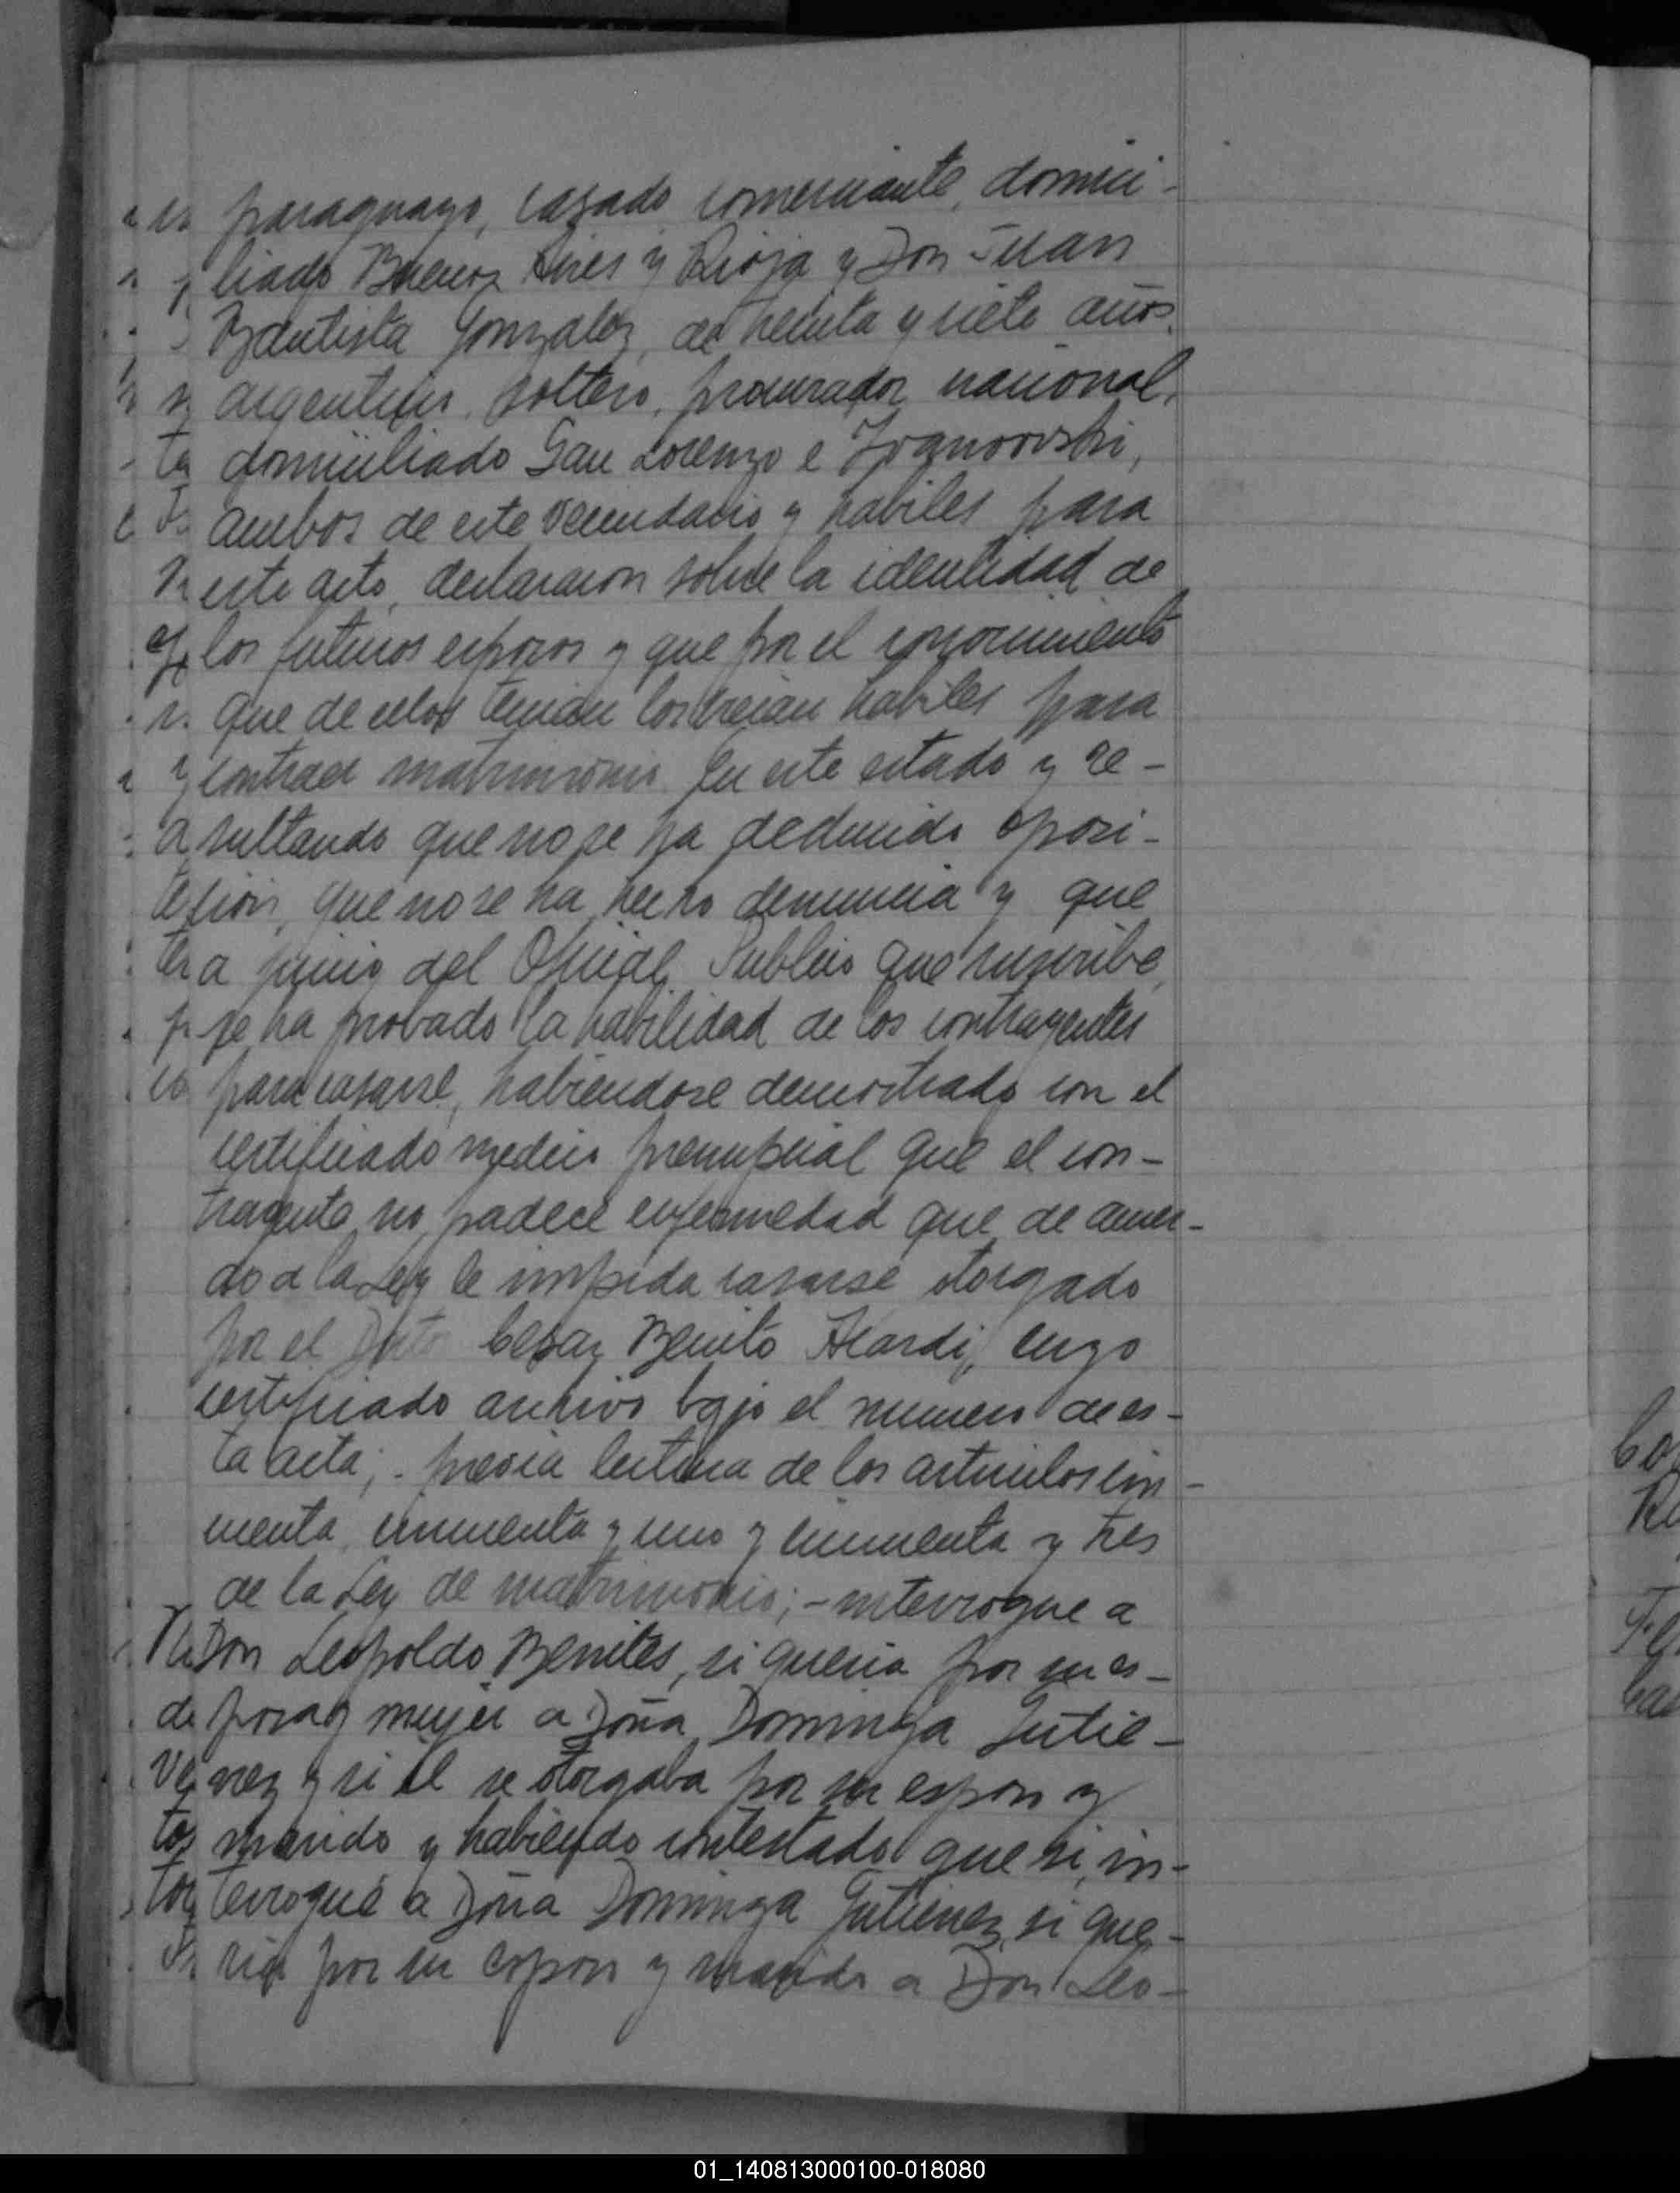 paraguayo, casado comerciante, domici-
liado Buenos Aires y Rioja y Don Juan
Bautista Gonzalez, de treinta y siete años,
argentino, soltero, procurador nacional,
domiciliado San Lorenzo e Ivanowski,
ambos de este vecindario y habiles para
este acto, declararon sobre la identidad de
los futuros esposos y que por el conocimiento
que de ellos tenian los creian habiles para
contraer matrimonio. En este estado y re-
sultando que no se ha deducido oposi-
cion, que no se ha hecho denuncia y que
a juicio del Oficial Publico que suscribe,
se ha probado la habilidad de los contrayentes
para casarse, habiendose demostrado con el
certificado medico prenupcial que el con-
trayente no padece enfermedad que de acuer-
do a la Ley le impida casarse otorgado
por el Doctor Cesar Benito Alardi, cuyo
certificado archivo bajo el numero de es-
ta acta; - previa lectura de los articulos cin-
cuenta, cincuenta y uno y cincuenta y tres
de la Ley de matrimonio; - interrogue a
Don Leopoldo Benites, si queria por su es-
posa y mujer a Doña Dominga Gutie-
rrez y si el se otorgaba por su esposo y
marido y habiendo contestado que si, in-
terrogué a Doña Dominga Gutierrez, si que-
ria por su esposo y marido a Don Leo-
01_140813000100-018080